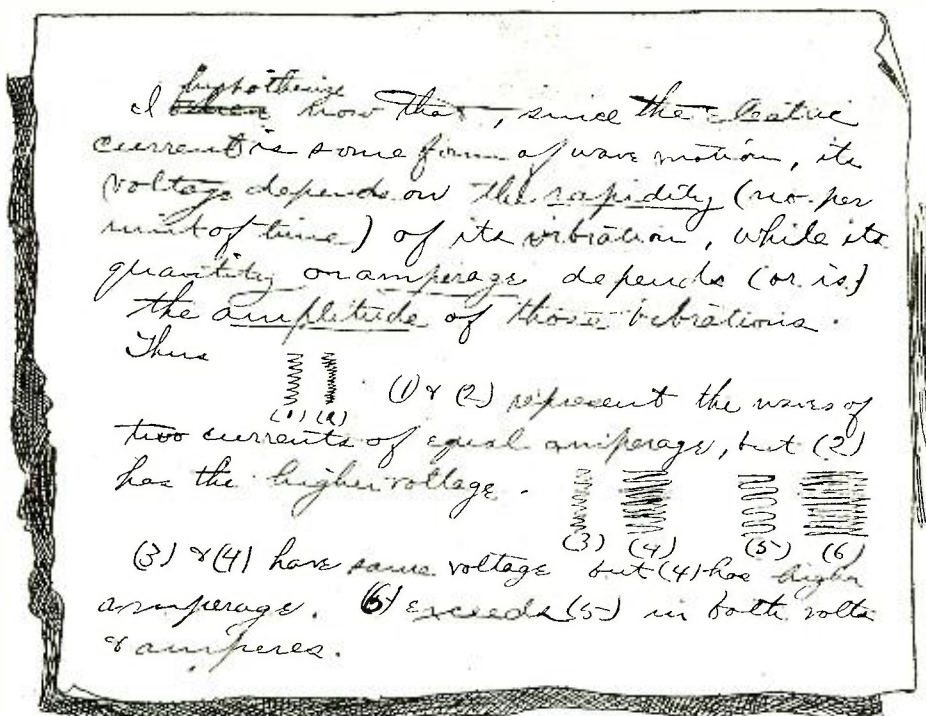 hypothesize
I now that, since the electric
current is some form of wave motion, its
voltage depends on the rapidity (no. per
unit of time) of its vibration, while its
quantity or amperage depends (or is)
the amplitude of those vibrations.
Thus
(1) (2) (1) & (2) represent the waves of
two currents of equal amperage, but (2)
has the higher voltage.
(3) (4) (5) (6)
(3) & (4) have same voltage but (4) has higher
amperage. (6) exceeds (5) in both volts
& amperes.